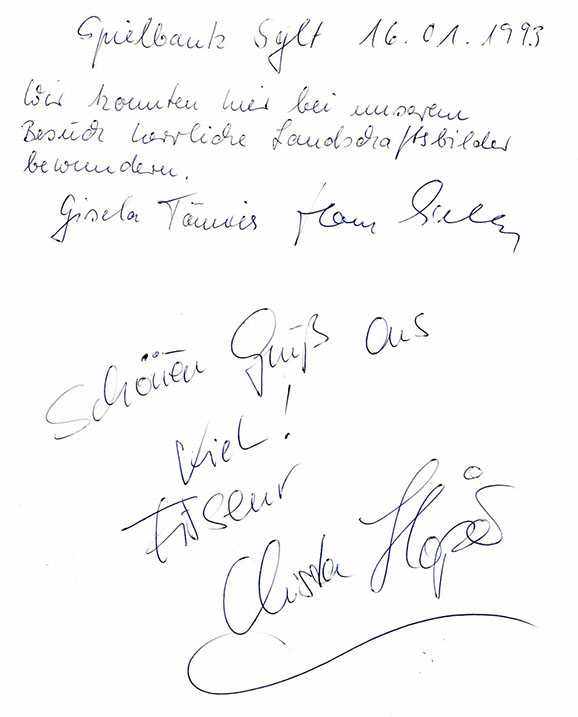 Spielbank Sylt 16.01.1993
Wir konnten hier bei unserem
Besuch herrliche Landschaftsbilder
bewundern.
Gisela Hans
Schönen Gruß aus
Kiel!
Friseur
Christa